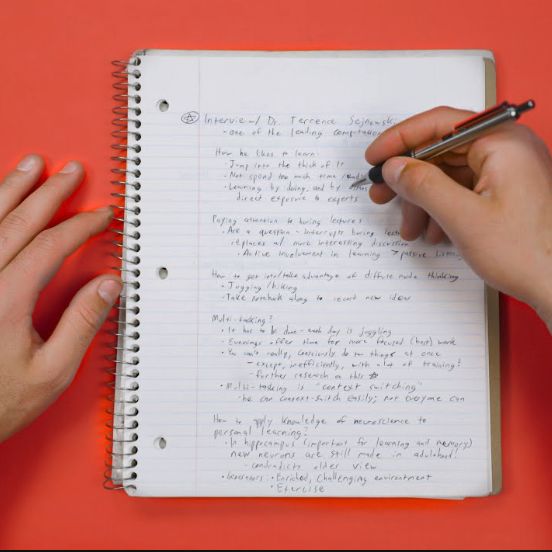 Interview w/ Dr. Terrence Sejnowski
- one of the leading computation
How he likes to learn:
- Jump into the thick of it
- Not spend too much time
- Learning by doing, and by
direct exposure to experts
Paying attention to boring lectures
- Ask a question - interrupts boring
replaces w/ more interesting discussion
- Active involvement in learning > passive
How to get into/take advantage of diffuse mode thinking
- Jogging/hiking
- Take notebook along to record new ideas
Multi-tasking?
- It has to be done - each day is juggling
- Evenings offer time for more focused (best) work
- You can't really, consciously do two things at once
- except, inefficiently, with a lot of training?
- further research on this
- Multi-tasking is "context switching"
- he can context-switch easily; not everyone can
How to apply knowledge of neuroscience to
personal learning?
- In hippocampus (important for learning and memory)
new neurons are still made in adulthood!
- contradicts older view
- Enriched, challenging environment
- Exercise